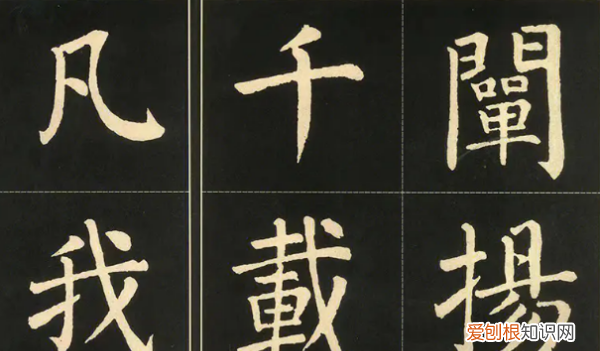 闡揚
千載
凡我
爱刨根知识网